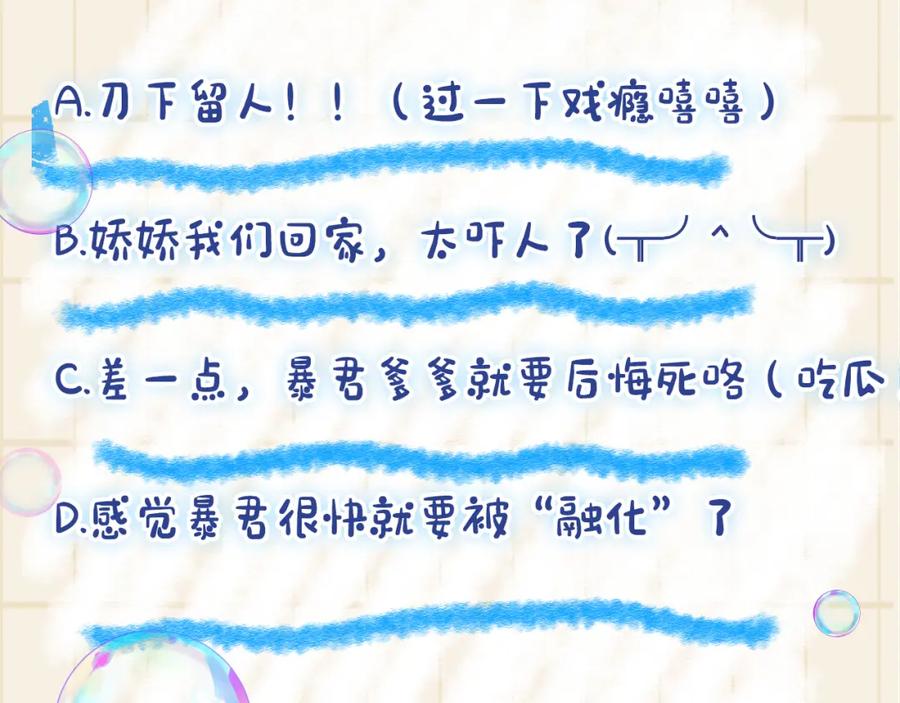 A.刀下留人！！（过一下戏瘾嘻嘻）
B.娇娇我们回家，太吓人了(╥╯^╰╥)
C.差一点，暴君爹爹就要后悔死咯（吃瓜
D.感觉暴君很快就要被“融化”了